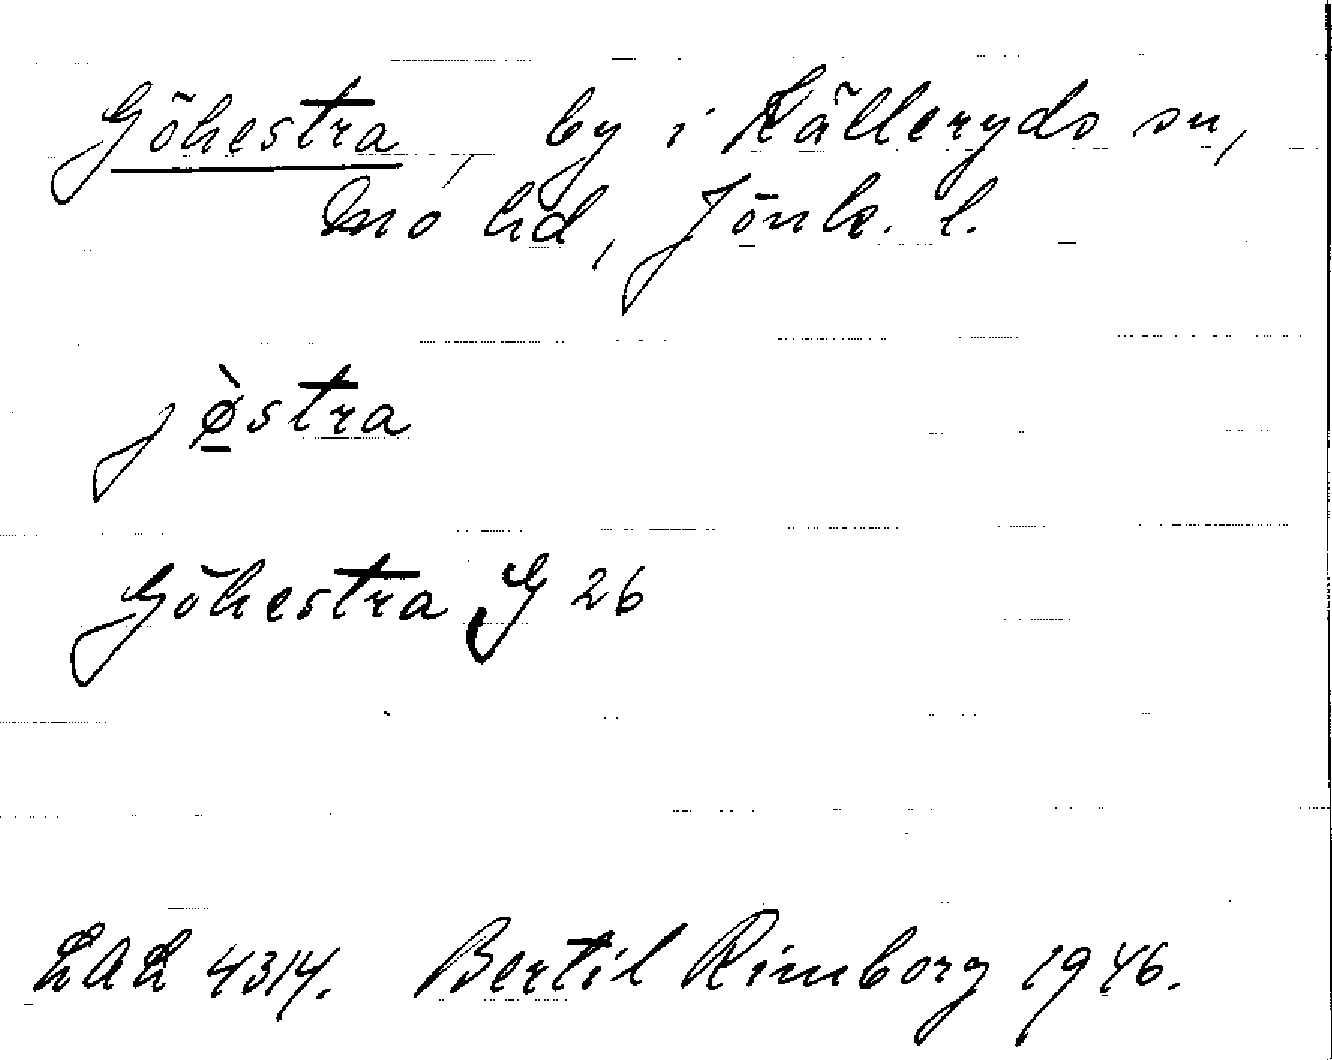 Göhestra, by i Källeryds sn,
Mo hd, Jönk. l.
jø̠̀stra
Göhestra G 26
LAL 4314. Bertil Rimborg 1946.